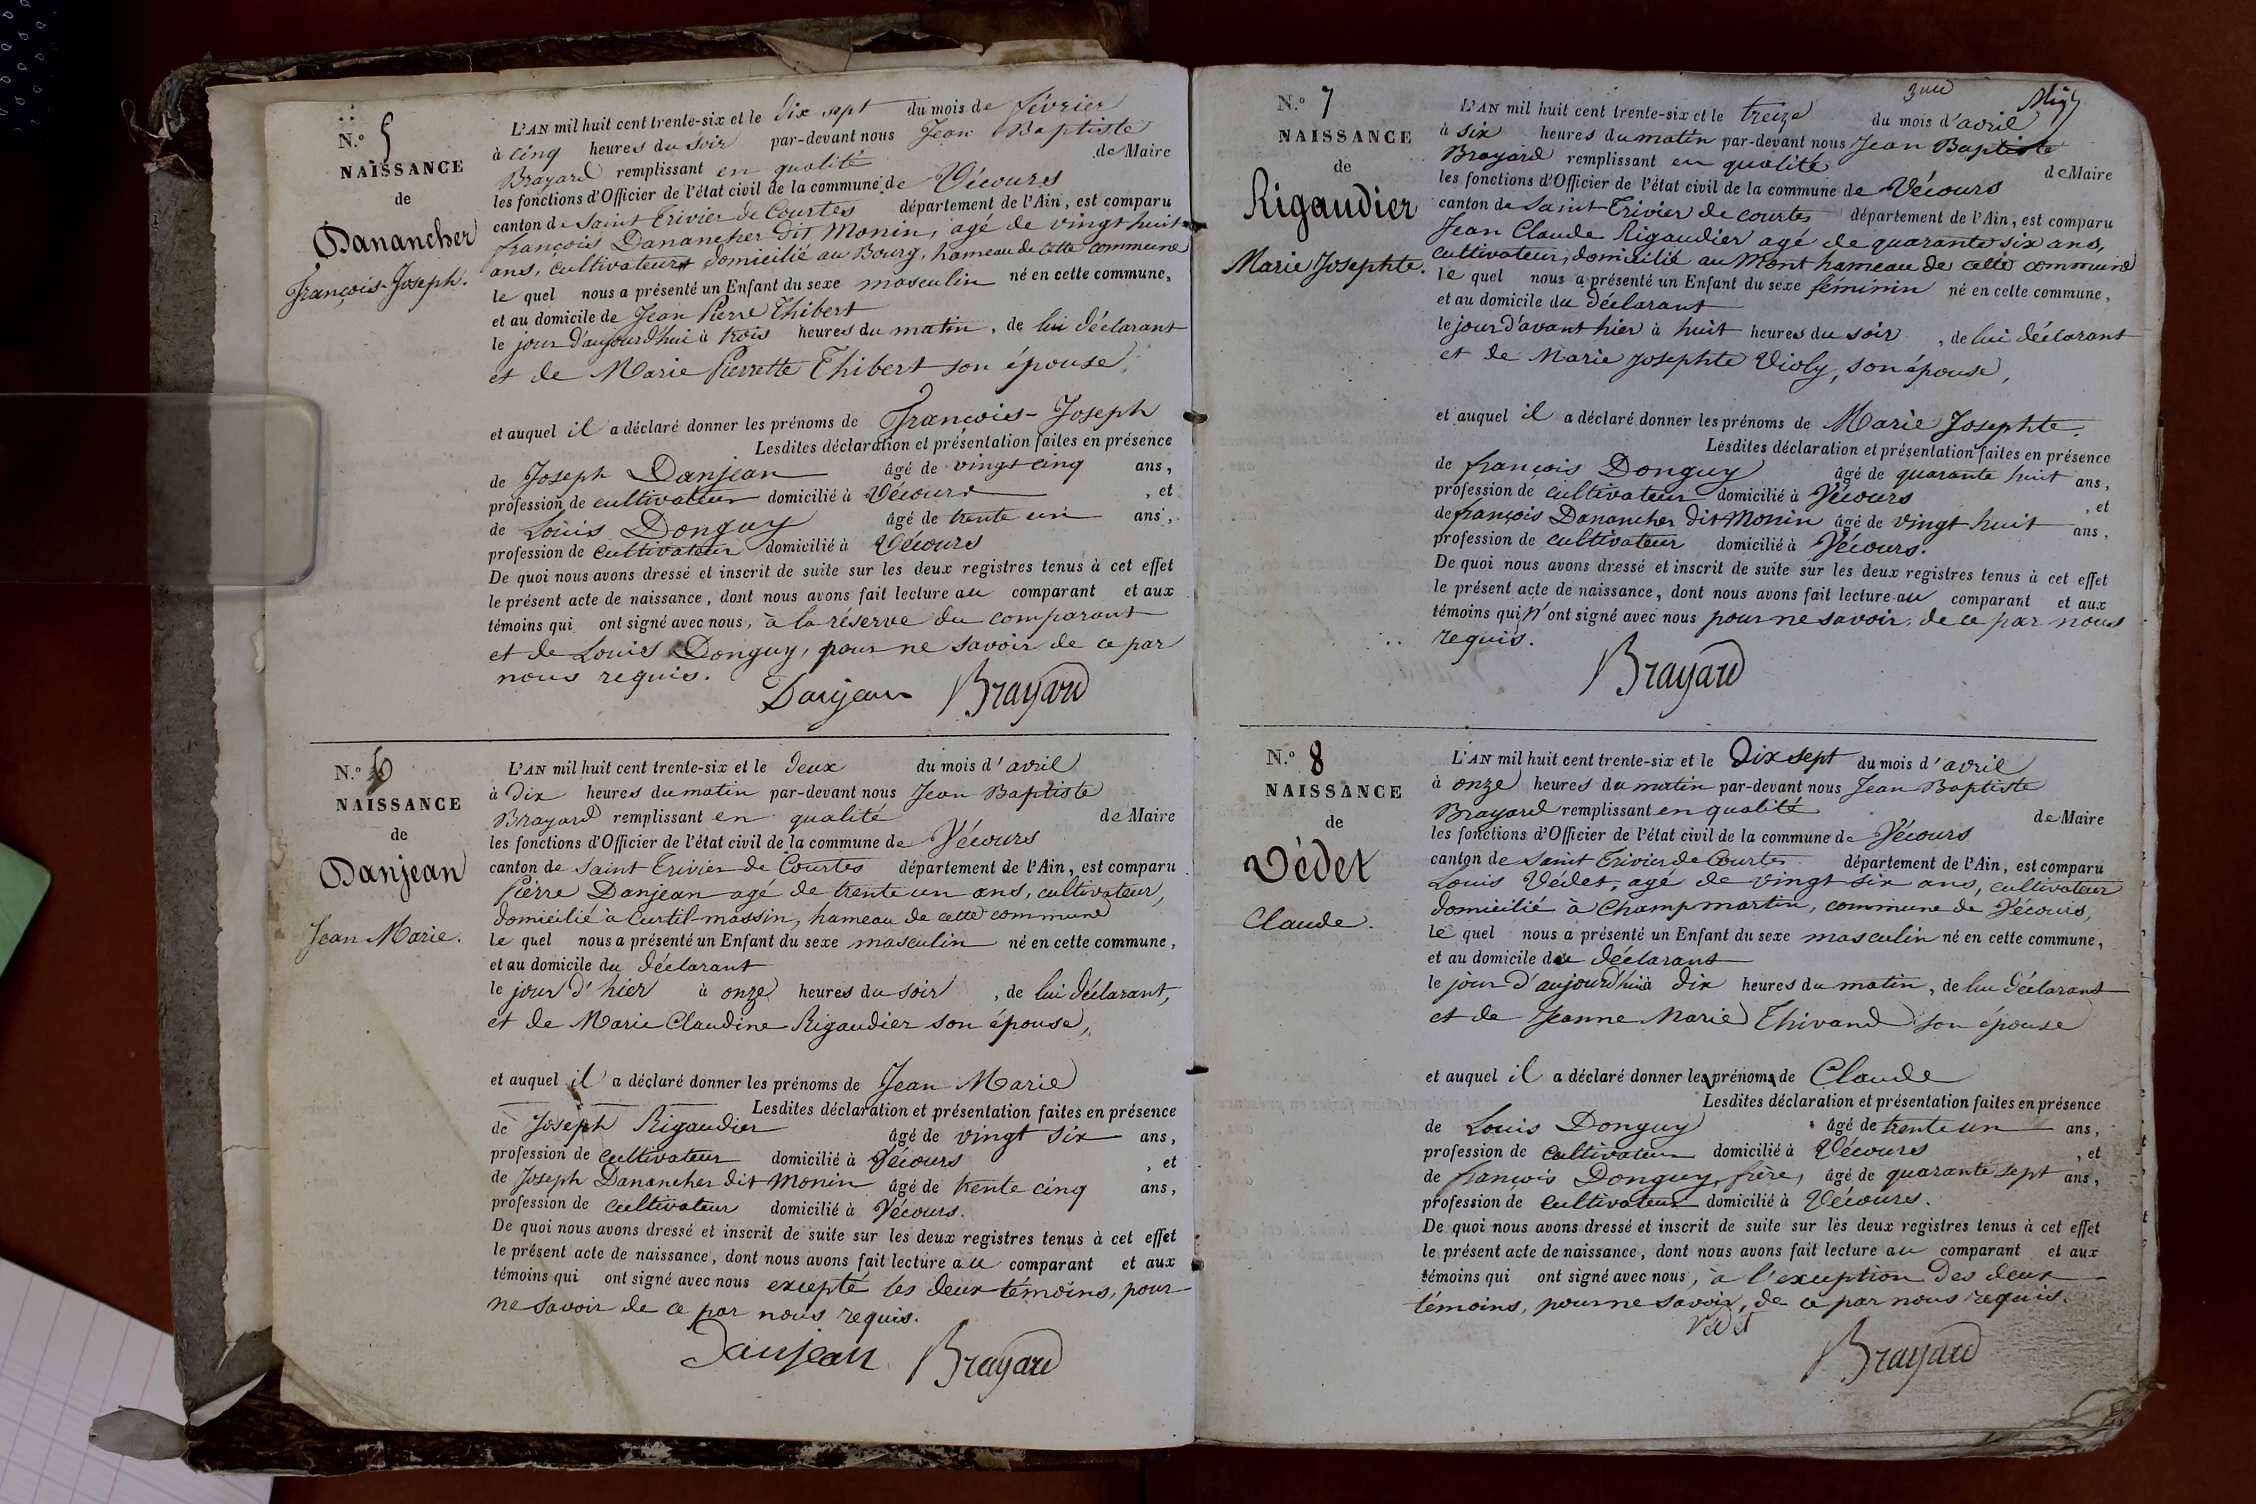 N.° 5
NAISSANCE
de
Danancher
François-Joseph.
L'AN mil huit cent trente-six et le dix sept du mois de février
à cinq heures du soir par-devant nous Jean Baptiste
Brayard remplissant en qualité de Maire
les fonctions d'Officier de l'état civil de la commune de Vécours
canton de Saint Trivier de Courtes département de l'Ain, est comparu
françois Danancher dit Monin, agé de vingt huit
ans, cultivateur domicilié au Bourg, hameau de cette commune
le quel nous a présenté un Enfant du sexe masculin né en cette commune,
et au domicile de Jean Pierre Thibert
le jour d'aujourd'hui à trois heures du matin, de lui déclarant
et de Marie Pierrette Thibert son épouse,
et auquel il a déclaré donner les prénoms de François-Joseph
Lesdites déclaration et présentation faites en présence
de Joseph Danjean âgé de vingt cinq ans,
profession de cultivateur domicilié à Vécours, et
de Louis Donguy âgé de trente un ans,
profession de cultivateur domicilié à Vécours
De quoi nous avons dressé et inscrit de suite sur les deux registres tenus à cet effet
le présent acte de naissance, dont nous avons fait lecture au comparant et aux
témoins qui ont signé avec nous, à la réserve du comparant
et de Louis Donguy, pour ne savoir de ce par
nous requis.
Danjean Brayard
N.° 6
NAISSANCE
de
Danjean
Jean Marie.
L'AN mil huit cent trente-six et le deux du mois d'avril
à dix heures du matin par-devant nous Jean Baptiste
Brayard remplissant en qualité de Maire
les fonctions d'Officier de l'état civil de la commune de Vécours
canton de Saint Trivier de Courtes département de l'Ain, est comparu
Pierre Danjean agé de trente un ans, cultivateur,
domicilié à Curtil-massin, hameau de cette commune
le quel nous a présenté un Enfant du sexe masculin né en cette commune,
et au domicile du déclarant
le jour d'hier à onze heures du soir, de lui déclarant,
et de Marie Claudine Rigaudier son épouse,
et auquel il a déclaré donner les prénoms de Jean Marie
Lesdites déclaration et présentation faites en présence
de Joseph Rigaudier âgé de vingt six ans,
profession de cultivateur domicilié à Vécours, et
de Joseph Danancher dit Monin âgé de trente cinq ans,
profession de cultivateur domicilié à Vécours.
De quoi nous avons dressé et inscrit de suite sur les deux registres tenus à cet effet
le présent acte de naissance, dont nous avons fait lecture au comparant et aux
témoins qui ont signé avec nous excepté les deux témoins, pour
ne savoir de ce par nous requis.
Danjean Brayard
N.° 7
NAISSANCE
de
Rigaudier
Marie Josephte.
L'AN mil huit cent trente-six et le treize du mois d'avril
à six heures du matin par-devant nous Jean Baptiste
Brayard remplissant en qualité de Maire
les fonctions d'Officier de l'état civil de la commune de Vécours
canton de Saint Trivier de courtes département de l'Ain, est comparu
Jean Claude Rigaudier agé de quarante six ans,
cultivateur, domicilié au Mont hameau de cette commune
le quel nous a présenté un Enfant du sexe féminin né en cette commune,
et au domicile du déclarant
le jour d'avant hier à huit heures du soir, de lui déclarant
et de Marie Josephte Violy, son épouse,
et auquel il a déclaré donner les prénoms de Marie Josephte.
Lesdites déclaration et présentation faites en présence
de françois Donguy âgé de quarante huit ans,
profession de cultivateur domicilié à Vécours, et
de françois Danancher dit Monin âgé de vingt huit ans,
profession de cultivateur domicilié à Vécours.
De quoi nous avons dressé et inscrit de suite sur les deux registres tenus à cet effet
le présent acte de naissance, dont nous avons fait lecture au comparant et aux
témoins qui n'ont signé avec nous pour ne savoir, de ce par nous
requis.
Brayard
N.° 8
NAISSANCE
de
Védet
Claude.
L'AN mil huit cent trente-six et le Dix sept du mois d'avril
à onze heures du matin par-devant nous Jean Baptiste
Brayard remplissant en qualité de Maire
les fonctions d'Officier de l'état civil de la commune de Vécours
canton de Saint Trivier de Courtes département de l'Ain, est comparu
Louis Védet, agé de vingt six ans, cultivateur
domicilié à Champmartin, commune de Vécours,
le quel nous a présenté un Enfant du sexe masculin né en cette commune,
et au domicile du déclarant
le jour d'aujourd'hui à dix heures du matin, de lui déclarant
et de Jeanne Marie Thivand son épouse
et auquel il a déclaré donner les prénoms de Claude
Lesdites déclaration et présentation faites en présence
de Louis Donguy âgé de trente un ans,
profession de cultivateur domicilié à Vécours, et
de françois Donguy, frère, âgé de quarante sept ans,
profession de cultivateur domicilié à Vécours.
De quoi nous avons dressé et inscrit de suite sur les deux registres tenus à cet effet
le présent acte de naissance, dont nous avons fait lecture au comparant et aux
témoins qui ont signé avec nous, à l'exception des deux
témoins, pour ne savoir, de ce par nous requis.
Védet
Brayard